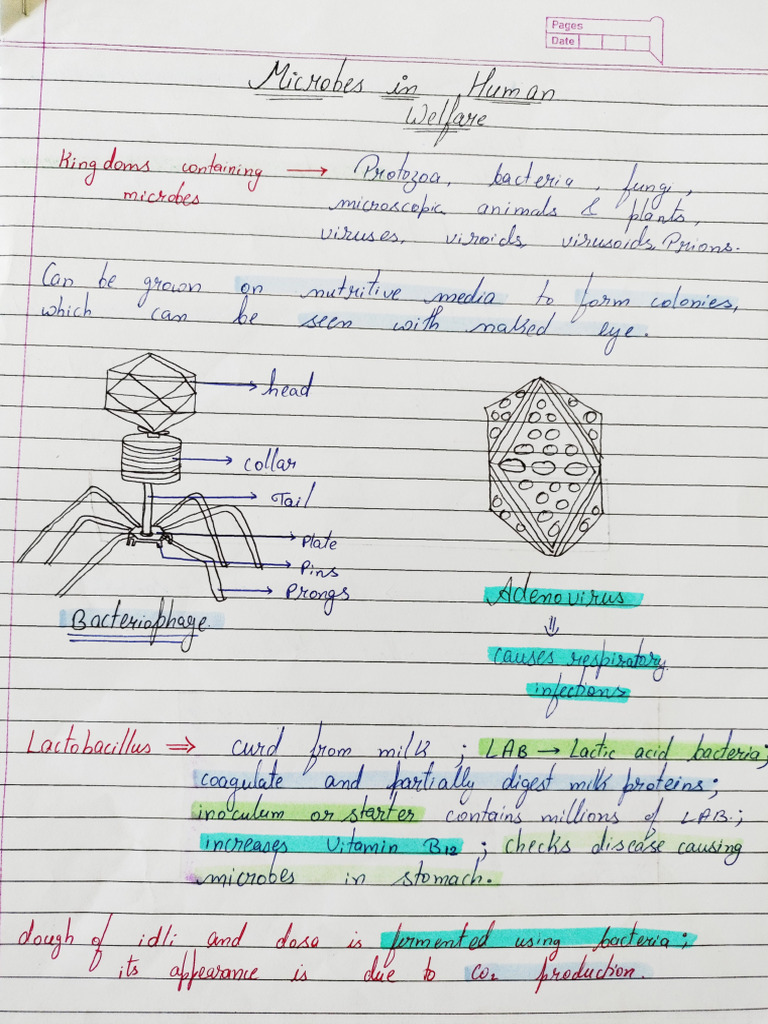 Pages
Date
Microbes in Human
Welfare
Kingdoms containing → Protozoa, bacteria, fungi,
microbes microscopic animals & plants,
viruses, viroids, virusoids, Prions.
Can be grown on nutritive media to form colonies,
which can be seen with naked eye.
head
collar
Tail
Plate
Pins
Prongs
Bacteriophage
Adenovirus
⇓
causes respiratory
infections
Lactobacillus ⇒ curd from milk ; LAB → Lactic acid bacteria;
coagulate and partially digest milk proteins;
inoculum or starter contains millions of LAB.;
increases Vitamin B12 ; checks disease causing
microbes in stomach.
dough of idli and dosa is fermented using bacteria;
its appearance is due to CO2 production.